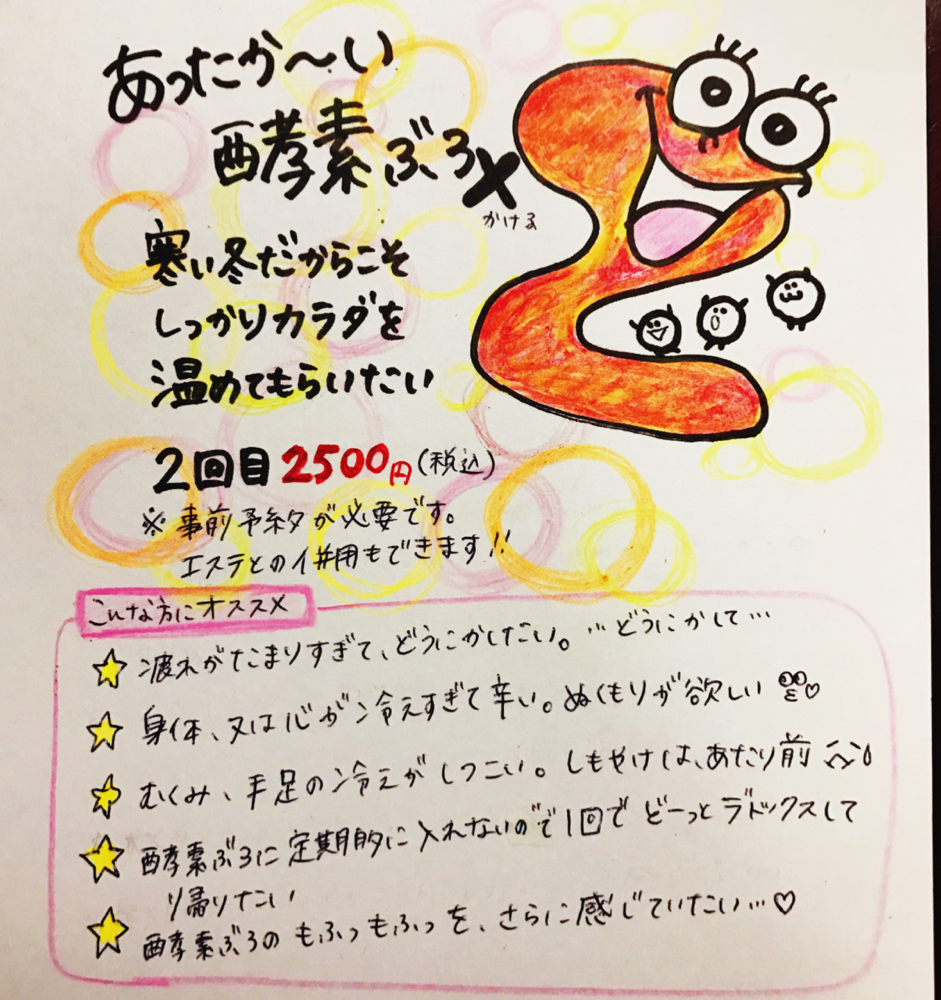 あったか〜い
酵素ぶろ×2
かける
寒い冬だからこそ
しっかりカラダを
温めてもらいたい
2回目2500円(税込)
※事前予約が必要です。
エステとの併用もできます!!
こんな方にオススメ
☆疲れがたまりすぎて、どうにかしたい。…どうにかして…
☆身体、又は心が冷えすぎて辛い。ぬくもりが欲しい♡
☆むくみ、手足の冷えがしつこい。しもやけは、あたり前
☆酵素ぶろに定期的に入れないので1回でどーっとデトックスして
り帰りたい
☆酵素ぶろのもふっもふっを、さらに感じていたい…♡